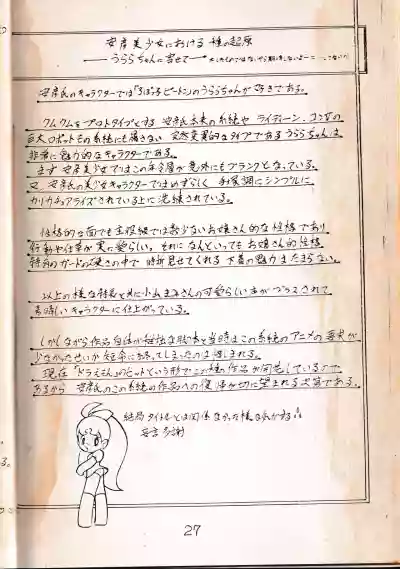 安彦美少女における種の起原
──うららちゃんに寄せて──
安彦氏のキャラクターでは「ろぼっ子ビートン」のうららちゃんが好きである。
クムクムをプロトタイプとする安彦本来の系統や ライディーン、コンVの
巨大ロボットものの系統にも属さない 突然変異的なタイプであるうららちゃんは
非常に魅力的なキャラクターである。
まず 安彦美少女では
又、安彦氏の美少女キャラクターではめずらしく シンプルに
カリカチュアライズされている上に洗練されている。
性格的な面でも主役級では数少ないお嬢さん的な性格であり
行動や仕草が実に愛らしい。それになんといってもお嬢さん的性格
特有のガードの堅さの中で 時折見せてくれる下着の魅力もたまらない。
以上の様な特長と共に小山まみさんの可愛らしい声がプラスされて
素晴しいキャラクターに仕上がっている。
しかしながら作品自体が と当時はこの系統のアニメの要求が
少なかったせいか短命に終ってしまったのは惜しまれる。
現在「ドラえもん」のヒットという形でこの種の作品が開花しているので
あるから 安彦氏のこの系統の作品への復帰が切に望まれる次第である。
結局タイトルとは関係なかった様な気がする
妄言多謝
27